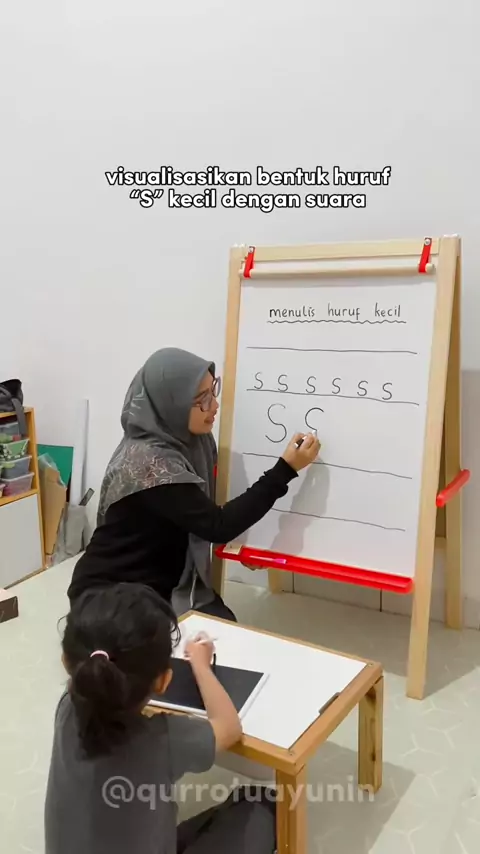 visualisasikan bentuk huruf
“S” kecil dengan suara
menulis huruf kecil
s s s s s s
S S
@qurrotuayunin